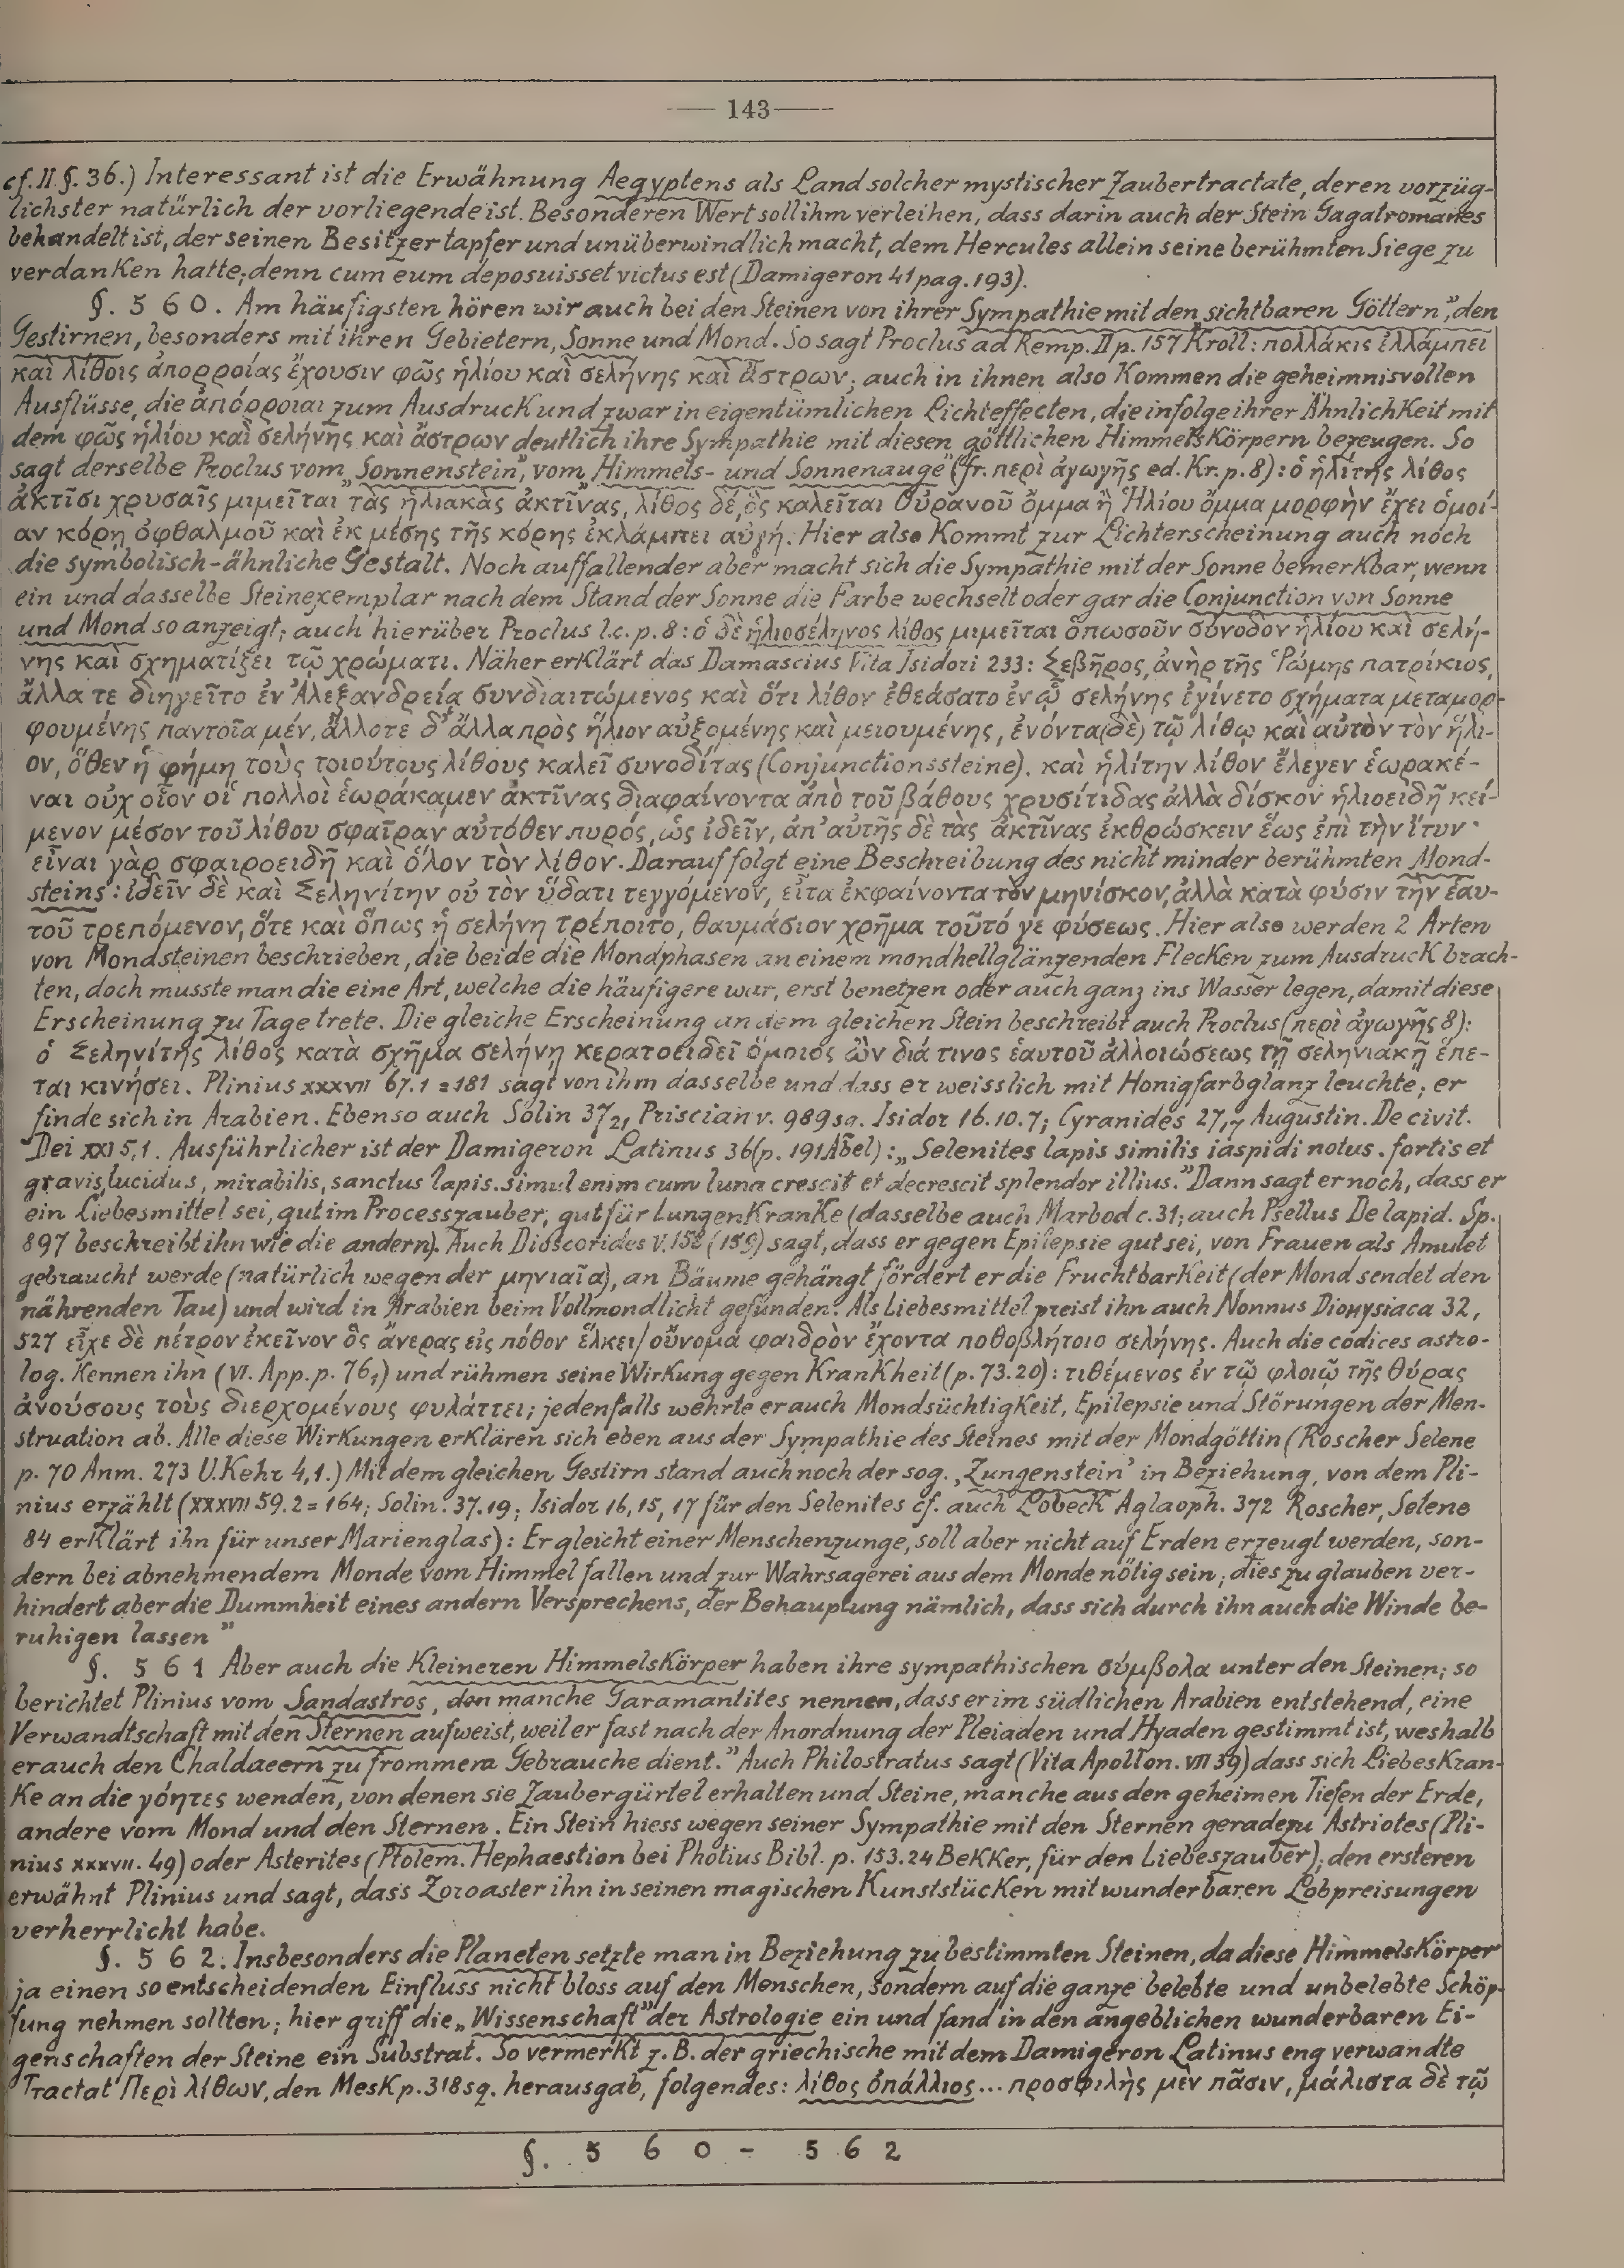 — 143 —
cf. II §. 36.) Interessant ist die Erwähnung Aegyptens als Land solcher mystischer Zaubertractate, deren vorzüg-
lichster natürlich der vorliegende ist. Besonderen Wert soll ihm verleihen, dass darin auch der Stein Gagatromanes
behandelt ist, der seinen Besitzer tapfer und unüberwindlich macht, dem Hercules allein seine berühmten Siege zu
verdanken hatte; denn cum eum deposuisset victus est (Damigeron 41 pag. 193).
§. 560. Am häufigsten hören wir auch bei den Steinen von ihrer Sympathie mit den „sichtbaren Göttern", den
Gestirnen, besonders mit ihren Gebietern, Sonne und Mond. So sagt Proclus ad Remp. II p. 157 Kroll: πολλάκις ἐλλάμπει
καὶ λίθοις ἀπορροίας ἔχουσιν φῶς ἡλίου καὶ σελήνης καὶ ἄστρων; auch in ihnen also kommen die geheimnisvollen
Ausflüsse, die ἀπόρροιαι zum Ausdruck und zwar in eigentümlichen Lichteffecten, die infolge ihrer Ähnlichkeit mit
dem φῶς ἡλίου καὶ σελήνης καὶ ἄστρων deutlich ihre Sympathie mit diesen göttlichen Himmelskörpern bezeugen. So
sagt derselbe Proclus vom „Sonnenstein", vom „Himmels- und Sonnenauge" (fr. περὶ ἀγωγῆς ed. Kr. p. 8): ὁ ἡλίτης λίθος
ἀκτῖσι χρυσαῖς μιμεῖται τὰς ἡλιακὰς ἀκτῖνας, λίθος δέ, ὃς καλεῖται Οὐρανοῦ ὄμμα ἢ Ἡλίου ὄμμα μορφὴν ἔχει ὁμοί-
αν κόρῃ ὀφθαλμοῦ καὶ ἐκ μέσης τῆς κόρης ἐκλάμπει αὐγή. Hier also kommt zur Lichterscheinung auch noch
die symbolisch-ähnliche Gestalt. Noch auffallender aber macht sich die Sympathie mit der Sonne bemerkbar, wenn
ein und dasselbe Steinexemplar nach dem Stand der Sonne die Farbe wechselt oder gar die Conjunction von Sonne
und Mond so anzeigt; auch hierüber Proclus l.c. p. 8: ὁ δὲ ἡλιοσέληνος λίθος μιμεῖται ὁπωσοῦν σύνοδον ἡλίου καὶ σελή-
νης καὶ σχηματίζει τῷ χρώματι. Näher erklärt das Damascius Vita Isidori 233: Σεβῆρος, ἀνὴρ τῆς Ῥώμης πατρίκιος,
ἄλλα τε διηγεῖτο ἐν Ἀλεξανδρείᾳ συνδιαιτώμενος καὶ ὅτι λίθον ἐθεάσατο ἐν ᾧ σελήνης ἐγίνετο σχήματα μεταμορ-
φουμένης παντοῖα μέν, ἄλλοτε δ' ἄλλα πρὸς ἥλιον αὐξομένης καὶ μειουμένης, ἐνόντα (δὲ) τῷ λίθῳ καὶ αὐτὸν τὸν ἥλι-
ον, ὅθεν ἡ φήμη τοὺς τοιούτους λίθους καλεῖ συνοδίτας (Conjunctionssteine). καὶ ἡλίτην λίθον ἔλεγεν ἑωρακέ-
ναι οὐχ οἷον οἱ πολλοὶ ἑωράκαμεν ἀκτῖνας διαφαίνοντα ἀπὸ τοῦ βάθους χρυσίτιδας ἀλλὰ δίσκον ἡλιοειδῆ κεί-
μενον μέσον τοῦ λίθου σφαῖραν αὐτόθεν πυρός, ὡς ἰδεῖν, ἀπ' αὐτῆς δὲ τὰς ἀκτῖνας ἐκθρώσκειν ἕως ἐπὶ τὴν ἴτυν·
εἶναι γὰρ σφαιροειδῆ καὶ ὅλον τὸν λίθον. Darauf folgt eine Beschreibung des nicht minder berühmten Mond-
steins: ἰδεῖν δὲ καὶ Σεληνίτην οὐ τὸν ὕδατι τεγγόμενον, εἶτα ἐκφαίνοντα τὸν μηνίσκον, ἀλλὰ κατὰ φύσιν τὴν ἑαυ-
τοῦ τρεπόμενον, ὅτε καὶ ὅπως ἡ σελήνη τρέποιτο, θαυμάσιον χρῆμα τοῦτό γε φύσεως. Hier also werden 2 Arten
von Mondsteinen beschrieben, die beide die Mondphasen an einem mondhellglänzenden Flecken zum Ausdruck brach-
ten, doch musste man die eine Art, welche die häufigere war, erst benetzen oder auch ganz ins Wasser legen, damit diese
Erscheinung zu Tage trete. Die gleiche Erscheinung an dem gleichen Stein beschreibt auch Proclus (περὶ ἀγωγῆς 8):
ὁ Σεληνίτης λίθος κατὰ σχῆμα σελήνη κερατοειδεῖ ὅμοιος ὢν διά τινος ἑαυτοῦ ἀλλοιώσεως τῇ σεληνιακῇ ἕπε-
ται κινήσει. Plinius XXXVII 67.1 = 181 sagt von ihm dasselbe und dass er weisslich mit Honigfarbglanz leuchte; er
finde sich in Arabien. Ebenso auch Solin 37,21, Priscian v. 989 sq. Isidor 16.10.7; Cyranides 27,7 Augustin. De civit.
Dei XXI 5,1. Ausführlicher ist der Damigeron Latinus 36 (p. 191 Abel): „Selenites lapis similis iaspidi notus. fortis et
gravis, lucidus, mirabilis, sanctus lapis. simul enim cum luna crescit et decrescit splendor illius." Dann sagt er noch, dass er
ein Liebesmittel sei, gut im Processzauber, gut für Lungenkranke (dasselbe auch Marbod c. 31; auch Psellus De lapid. Sp.
897 beschreibt ihn wie die andern). Auch Dioscorides V. 158 (159) sagt, dass er gegen Epilepsie gut sei, von Frauen als Amulet
gebraucht werde (natürlich wegen der μηνιαῖα), an Bäume gehängt fördert er die Fruchtbarkeit (der Mond sendet den
nährenden Tau) und wird in Arabien beim Vollmondlicht gefunden. Als Liebesmittel preist ihn auch Nonnus Dionysiaca 32,
527 εἶχε δὲ πέτρον ἐκεῖνον ὃς ἄνερας εἰς πόθον ἕλκει / οὔνομα φαιδρὸν ἔχοντα ποθοβλήτοιο σελήνης. Auch die codices astro-
log. kennen ihn (VI. App. p. 76,1) und rühmen seine Wirkung gegen Krankheit (p. 73.20): τιθέμενος ἐν τῷ φλοιῷ τῆς θύρας
ἀνούσους τοὺς διερχομένους φυλάττει; jedenfalls wehrte er auch Mondsüchtigkeit, Epilepsie und Störungen der Men-
struation ab. Alle diese Wirkungen erklären sich eben aus der Sympathie des Steines mit der Mondgöttin (Roscher Selene
p. 70 Anm. 273 U. Kehr 4,1.) Mit dem gleichen Gestirn stand auch noch der sog. ‚Zungenstein' in Beziehung, von dem Pli-
nius erzählt (XXXVII 59.2 = 164; Solin. 37.19; Isidor 16,15,17 für den Selenites cf. auch Lobeck Aglaoph. 372 Roscher, Selene
84 erklärt ihn für unser Marienglas): Er gleicht einer Menschenzunge, soll aber nicht auf Erden erzeugt werden, son-
dern bei abnehmendem Monde vom Himmel fallen und zur Wahrsagerei aus dem Monde nötig sein; dies zu glauben ver-
hindert aber die Dummheit eines andern Versprechens, der Behauptung nämlich, dass sich durch ihn auch die Winde be-
ruhigen lassen"
§. 561 Aber auch die Kleineren Himmelskörper haben ihre sympathischen σύμβολα unter den Steinen; so
berichtet Plinius vom Sandastros, den manche Garamantites nennen, dass er im südlichen Arabien entstehend, eine
Verwandtschaft mit den Sternen aufweist, weil er fast nach der Anordnung der Pleiaden und Hyaden gestimmt ist, weshalb
er auch den Chaldaeern zu frommem Gebrauche dient." Auch Philostratus sagt (Vita Apollon. VII 39) dass sich Liebeskran-
ke an die γόητες wenden, von denen sie Zaubergürtel erhalten und Steine, manche aus den geheimen Tiefen der Erde,
andere vom Mond und den Sternen. Ein Stein hiess wegen seiner Sympathie mit den Sternen geradezu Astriotes (Pli-
nius XXXVII. 49) oder Asterites (Ptolem. Hephaestion bei Photius Bibl. p. 153.24 Bekker, für den Liebeszauber); den ersteren
erwähnt Plinius und sagt, dass Zoroaster ihn in seinen magischen Kunststücken mit wunderbaren Lobpreisungen
verherrlicht habe.
§. 562. Insbesonders die Planeten setzte man in Beziehung zu bestimmten Steinen, da diese Himmelskörper
ja einen so entscheidenden Einfluss nicht bloss auf den Menschen, sondern auf die ganze belebte und unbelebte Schöp-
fung nehmen sollten; hier griff die „Wissenschaft" der Astrologie ein und fand in den angeblichen wunderbaren Ei-
genschaften der Steine ein Substrat. So vermerkt z. B. der griechische mit dem Damigeron Latinus eng verwandte
Tractat Περὶ λίθων, den Mesk p. 318 sq. herausgab, folgendes: λίθος ὀπάλλιος... προσφιλὴς μὲν πᾶσιν, μάλιστα δὲ τῷ
§. 560 - 562